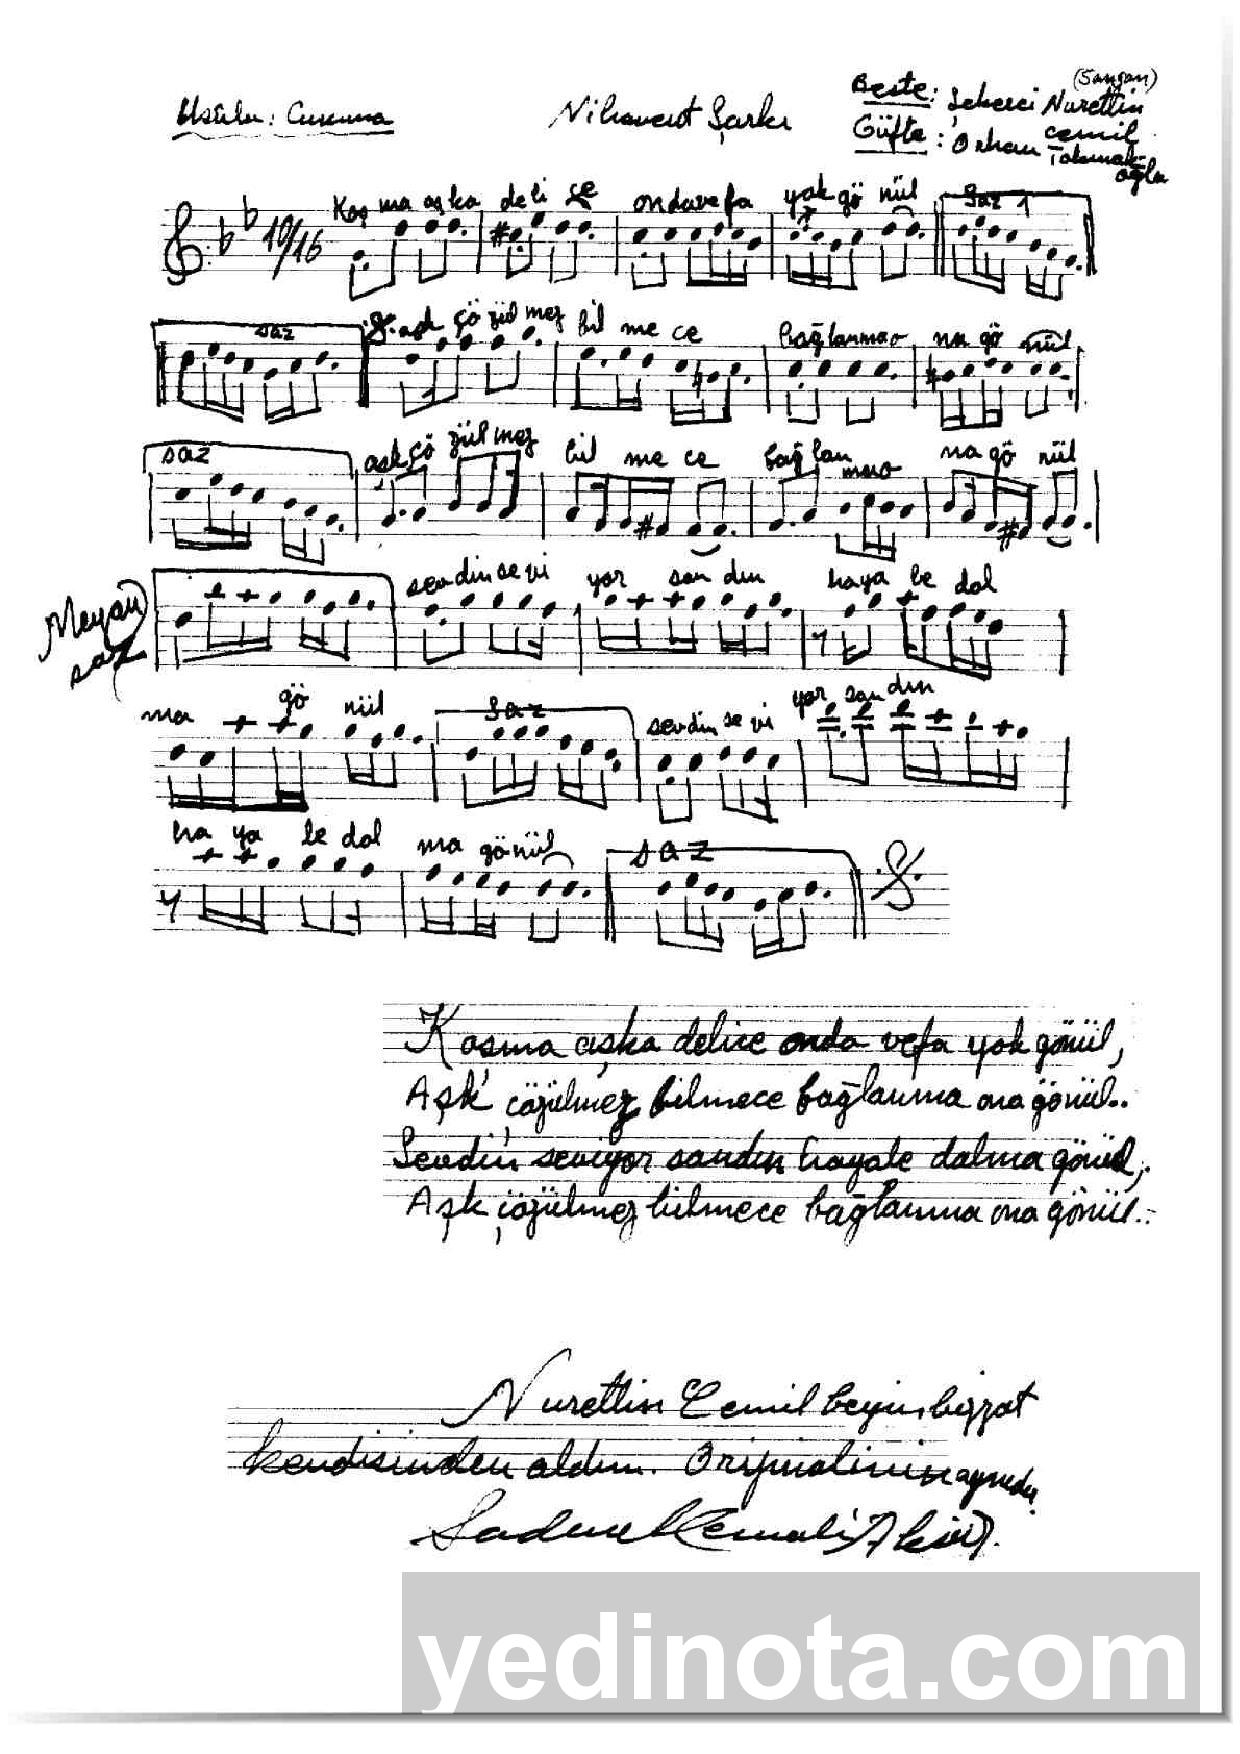 Usûlu: Curcuna
Nihavent Şarkı
(Sangan)
Beste: Şekerci Nurettin
Cemil
Güfte: Orhan Tokmak-
oğlu
10/16
Koş ma aşka deli ce onda vefa yok gö nül Saz 1
saz aşk çö zül mez bil me ce bağlanma o na gö nül
saz aşk çö zül mez bil me ce bağ lan ma o na gö nül
Meyan
saz
sevdin se vi yor san dın haya le dal
ma gö nül saz sevdin se vi yor san dın
ha ya le dal ma gönül saz
Koşma aşka delice onda vefa yok gönül,
Aşk çözülmez bilmece bağlanma ona gönül..
Sevdin seviyor sandın hayale dalma gönül,
Aşk çözülmez bilmece bağlanma ona gönül..
Nurettin Cemil beyin bizzat
kendisinden aldım. Orijinalinin aynıdır.
yedinota.com